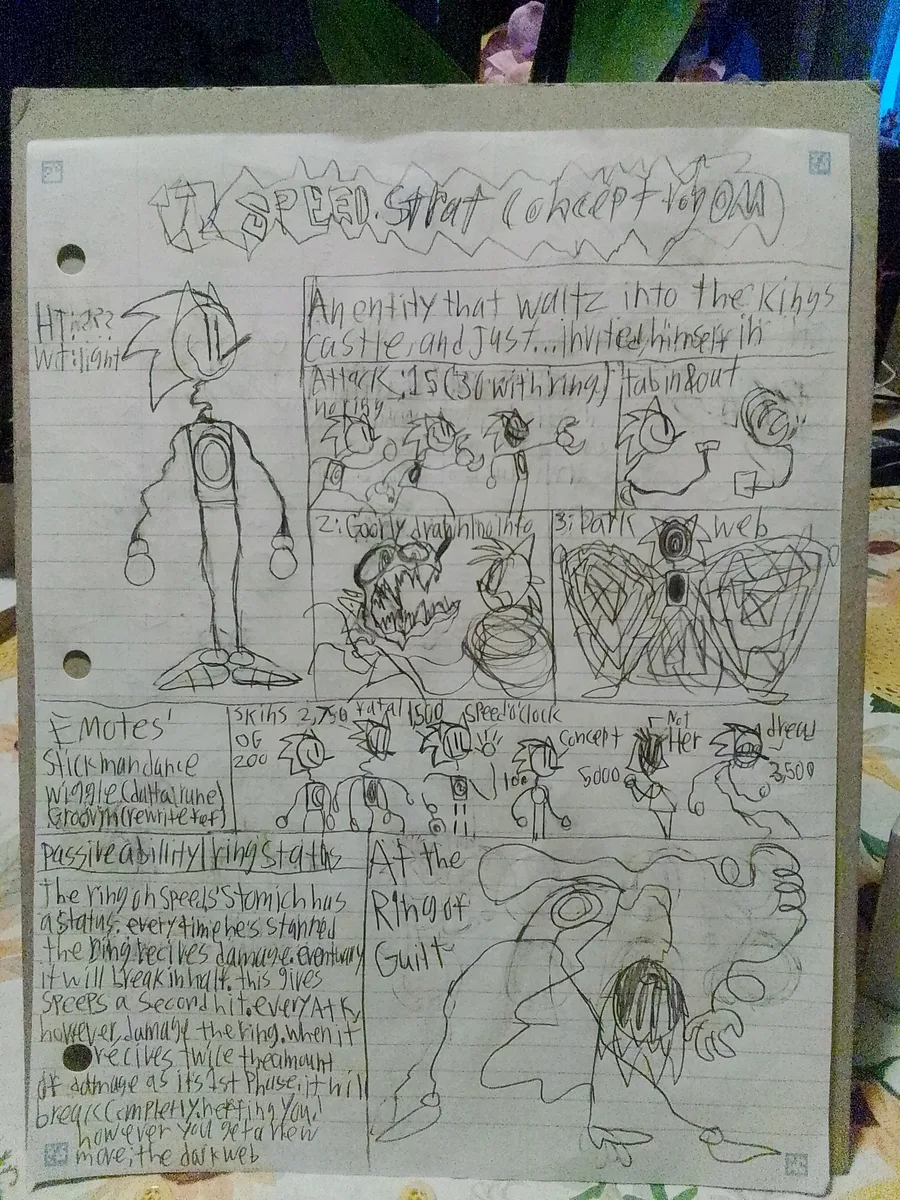 SPEED. Strat Concept
HT:???
WT:light
An entity that waltz into the kings
castle, and just...invited himself in
Attack:15(30 with ring)
no ring
tab in&out
2:Goofy drawning into
3:Dark web
EMotes'
Stickmandance
wiggle(duttatrune)
Groovin(rewrite ref)
Skins 2,750 fatal 1500 speed o'clock
OG
200
100
Concept
5000
Not
Her
dread
3,500
passive ability|ring Staths
The ring on speeds' Stomich has
a status. every time he's Stanned
the Ring recives damage. eventualy
it will break in half. this gives
Speeps a second hit. every Atk,
however, damage the ring. when it
recives twice the amount
of damage as its 1st Phase, it will
break Completly. nerfing you.
however you get a new
move; the dark web
At the
Ring of
Guilt